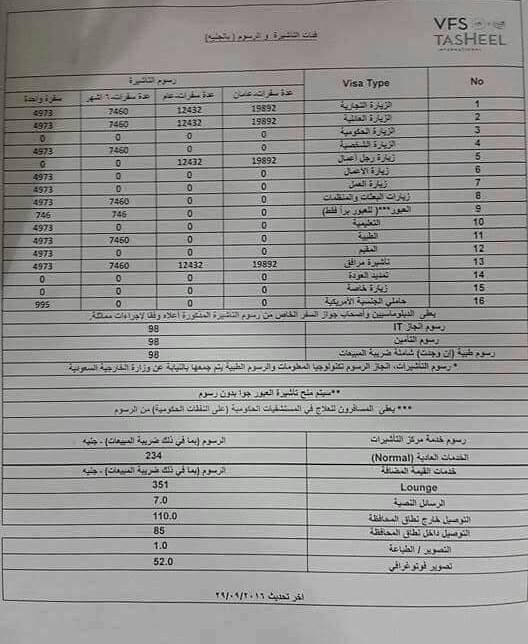 VFS
TASHEEL
INTERNATIONAL
فئات التأشيرة و الرسوم ( بالجنيه)
No Visa Type رسوم التأشيرة
عدة سفرات-عامان عدة سفرات-عام عدة سفرات-٦ اشهر سفرة واحدة
1 الزيارة التجارية 19892 12432 7460 4973
2 الزيارة العائلية 19892 12432 7460 4973
3 الزيارة الحكومية 0 0 0 0
4 الزيارة الشخصية 0 0 7460 4973
5 زيارة رجل أعمال 19892 12432 0 0
6 زيارة الاعمال 0 0 0 4973
7 زيارة العمل 0 0 0 4973
8 زيارات البعثات والمنظمات 0 0 7460 4973
9 العبور***( للعبور براً فقط) 0 0 746 746
10 التعليمية 0 0 0 4973
11 الطبية 0 0 7460 4973
12 المقيم 0 0 0 4973
13 تأشيرة مرافق 19892 12432 7460 4973
14 تمديد العودة 0 0 0 0
15 زيارة خاصة 0 0 0 0
16 حاملي الجنسية الأمريكية 0 0 0 995
يعفى الدبلوماسيين وأصحاب جواز السفر الخاص من رسوم التأشيرة المذكورة أعلاه وفقا لاجراءات مماثلة.
رسوم انجاز IT 98
رسوم التأمين 98
رسوم طبية (إن وجدت) شاملة ضريبة المبيعات 98
* رسوم التأشيرات، انجاز الرسوم تكنولوجيا المعلومات والرسوم الطبية يتم جمعها بالنيابة عن وزارة الخارجية السعودية
**سيتم منح تأشيرة العبور جوا بدون رسوم
*** يعفى المسافرون للعلاج في المستشفيات الحكومية (على النفقات الحكومية) من الرسوم
رسوم خدمة مركز التأشيرات الرسوم (بما في ذلك ضريبة المبيعات) - جنيه
الخدمات العادية (Normal) 234
خدمات القيمة المضافة الرسوم (بما في ذلك ضريبة المبيعات) - جنيه
Lounge 351
الرسائل النصية 7.0
التوصيل خارج نطاق المحافظة 110.0
التوصيل داخل نطاق المحافظة 85
التصوير / الطباعة 1.0
تصوير فوتوغرافي 52.0
اخر تحديث ٢٩/٠٩/٢٠١٦